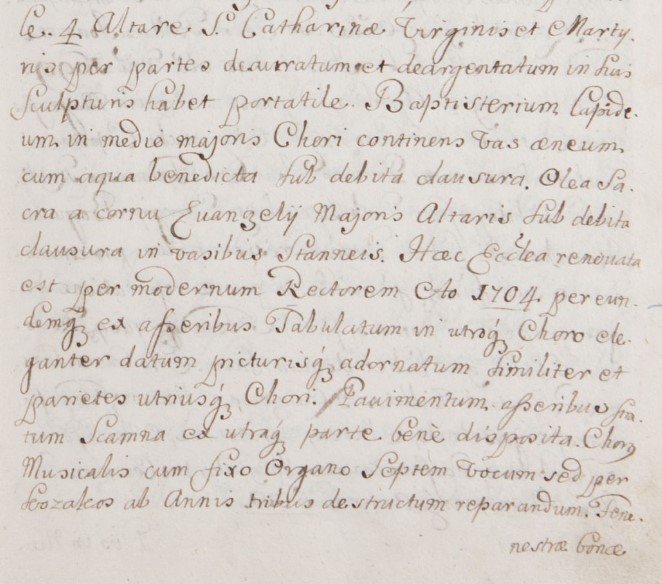 le. 4 Altare S. Catharinæ Virginis et Marty.
ris per partes deauratum et deargentatum in suis
sculpturis habet portatile. Baptisterium Lapide.
um in medio majoris Chori continens vas æneum
cum aqua benedicta sub debita clausura. Olea Sa.
cra a cornu Evangelij Majoris Altaris sub debita
clausura in vasibus Stanneis. Hæc Eccl̃ea renovata
est per modernum Rectorem Aõ 1704 per eun.
demq́ ex asseribus Tabulatum in utroq́ Choro ele.
ganter datum picturisq́ adornatum similiter et
parietes utriusq́ Chori. Pavimentum asseribus stra.
tum Scamna ex utraq́ parte benè disposita. Chorus
Musicalis cum fixo Organo Septem vocum sed per
Kozakos ab Annis tribus destructum reparandum. Fene.
nestræ bonæ